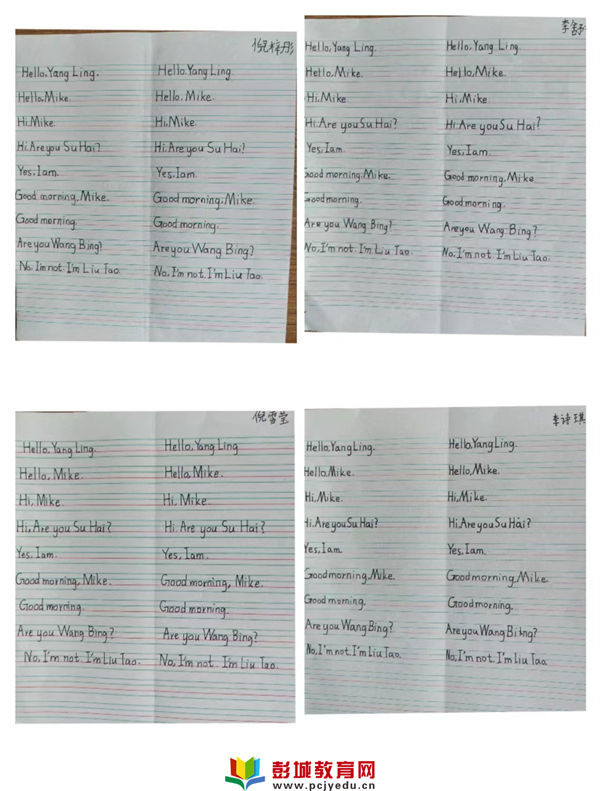 倪梓彤
Hello, Yang Ling. Hello. Yang Ling
Hello, Mike. Hello. Mike.
Hi, Mike. Hi, Mike.
Hi. Are you Su Hai? Hi. Are you Su Hai?
Yes, I am. Yes, I am.
Good morning, Mike. Good morning, Mike.
Good morning. Good morning.
Are you Wang Bing? Are you Wang Bing?
No. I'm not. I'm Liu Tao. No, I'm not. I'm Liu Tao.
李
Hello, Yang Ling. Hello, Yang Ling
Hello, Mike. Hello, Mike.
Hi, Mike Hi, Mike
Hi. Are you Su Hai? Hi. Are you Su Hai?
Yes, I am. Yes, I am.
Good morning, Mike. Good morning, Mike.
Good morning. Good morning.
Are you Wang Bing? Are you Wang Bing?
No, I'm not. I'm Liu Tao. No, I'm not. I'm Liu Tao.
倪雪莹
Hello. Yang Ling. Hello, Yang Ling
Hello, Mike. Hello, Mike.
Hi, Mike. Hi, Mike.
Hi, Are you Su Hai? Hi. Are you Su Hai?
Yes, I am. Yes, I am.
Good morning, Mike. Good morning, Mike.
Good morning. Good morning.
Are you Wang Bing? Are you Wang Bing?
No, I'm not. I'm Liu Tao. No, I'm not. I'm Liu Tao.
李诗琪
Hello. Yang Ling. Hello, Yang Ling.
Hello, Mike. Hello, Mike.
Hi, Mike. Hi, Mike.
Hi. Are you Su Hai? Hi. Are you Su Hai?
Yes, I am Yes, I am.
Good morning, Mike. Good morning, Mike.
Good morning. Good morning,
Are you Wang Bing? Are you Wang Bing?
No, I'm not. I'm Liu Tao. No, I'm not. I'm Liu Tao
彭城教育网
www.pcjyedu.cn